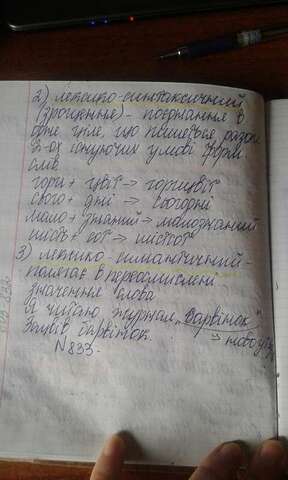 2) лексико-синтаксичний
(зрощення) - поєднання в
одне ціле, що пишеться разом
2-ох існуючих у мові форм
слів.
гори + цвіт → горицвіт
сього + дні → сьогодні
мало + знаний → малознаний
шість + сот → шістсот
3) лексико-семантичний -
полягає в переосмислені
значення слова
Я читаю журнал „Барвінок"
Зацвів барвінок. → ново
N 833.